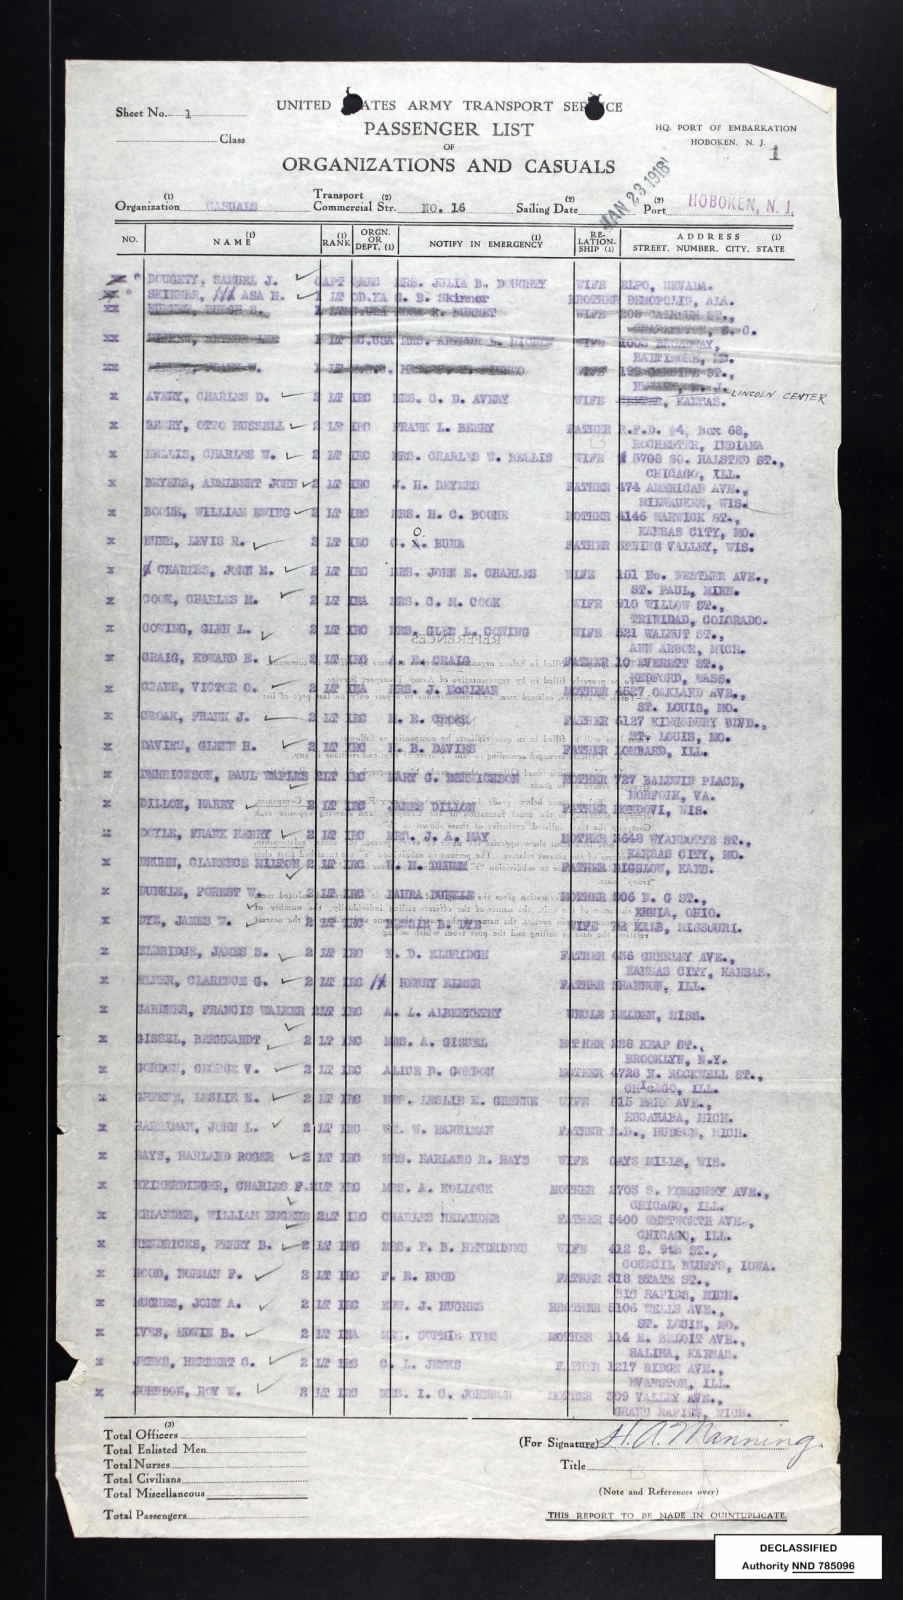 UNITED STATES ARMY TRANSPORT SERVICE
Sheet No. 1
PASSENGER LIST
Class
OF
HQ. PORT OF EMBARKATION
HOBOKEN, N. J.
1
ORGANIZATIONS AND CASUALS
JAN 23 1918
(1) Organization CASUALS Transport (2) Commercial Str. NO. 16 Sailing Date (2) Port (2) HOBOKEN, N. J.
NO. NAME (1) RANK (1) ORGN. OR DEPT. (1) NOTIFY IN EMERGENCY (1) RELATIONSHIP (1) ADDRESS (1) STREET, NUMBER, CITY, STATE
DOUGHTY, SAMUEL J. CAPT MRS. JULIA B. DOUGHTY WIFE ELPO, NEVADA.
SKINNER, ASA H. 1 LT OD.NA C. B. Skinner BROTHER DEMOPOLIS, ALA.
XX 1 LT WIFE
XX 1 LT WIFE BROADWAY,
BALTIMORE, MD.
XX 1 LT WIFE
x AVERY, CHARLES D. 2 LT IRC MRS. C. D. AVERY WIFE KANSAS. LINCOLN CENTER
x BERRY, OTTO RUSSELL 2 LT IRC FRANK L. BERRY FATHER R.F.D. #4, Box 68,
ROCHESTER, INDIANA
x BELLIS, CHARLES W. 2 LT IRC MRS. CHARLES W. BELLIS WIFE 5708 SO. HALSTED ST.,
CHICAGO, ILL.
x BEYERS, ADELBERT JOHN 2 LT IRC J. H. BEYERS FATHER 474 AMERICAN AVE.,
MILWAUKEE, WIS.
x BOONE, WILLIAM EWING 2 LT IRC MRS. H. C. BOONE MOTHER 4146 WARWICK ST.,
KANSAS CITY, MO.
x BUHR, LEVIS R. 2 LT IRC C. O. BUHR FATHER SPRING VALLEY, WIS.
x CHARLES, JOHN E. 2 LT IRC MRS. JOHN E. CHARLES WIFE 151 No. AVE.,
ST. PAUL, MINN.
x COOK, CHARLES M. 2 LT INA MRS. C. M. COOK WIFE 910 WILLOW ST.,
TRINIDAD, COLORADO.
x COWING, GLEN L. 2 LT IRC MRS. GLEN L. COWING WIFE 521 WALNUT ST.,
ANN ARBOR, MICH.
x CRAIG, EDWARD E. 2 LT IRC CRAIG FATHER 10 EVERETT ST.,
MEDFORD, MASS.
x CRANE, VICTOR C. 2 LT INA MRS. J. McCLEAN MOTHER 4527 OAKLAND AVE.,
ST. LOUIS, MO.
x CROAK, FRANK J. 2 LT IRC M. E. CROAK FATHER 5127 KINGSBURY BLVD.,
ST. LOUIS, MO.
x DAVIES, GLENN H. 2 LT IRC B. DAVIES FATHER LOMBARD, ILL.
x DERRICKSON, PAUL WAPLES 2LT IRC MARY C. DERRICKSON MOTHER 727 BALDWIN PLACE,
NORFOLK, VA.
x DILLON, HARRY 2 LT IRC JAMES DILLON FATHER MONDOVI, WIS.
x DOYLE, FRANK HENRY 2 LT IRC MRS. J. A. MAY MOTHER 3648 WYANDOTTE ST.,
KANSAS CITY, MO.
x CLARENCE MILTON 2 LT IRC FATHER BIGELOW, KANS.
x DUNKLE, FOREST W. 2 LT IRC LAURA DUNKLE MOTHER 306 N. G ST.,
XENIA, OHIO.
x DYE, JAMES W. 2 LT IRC BESSIE B. DYE WIFE DE KALB, MISSOURI.
x ELDRIDGE, JAMES B. 2 LT IRC E. D. ELDRIDGE FATHER 436 GREELEY AVE.,
KANSAS CITY, KANSAS.
x ELMER, CLARENCE G. 2 LT IRC HENRY ELMER FATHER SHANNON, ILL.
x GARDNER, FRANCIS WALKER 2LT IRC A. L. UNCLE BELDEN, MISS.
x GISSEL, BERNHARDT 2 LT IRC MRS. A. GISSEL MOTHER 288 KEAP ST.,
BROOKLYN, N.Y.
x GORDON, GEORGE V. 2 LT IRC ALICE B. GORDON MOTHER 4728 N. ROCKWELL ST.,
CHICAGO, ILL.
x GREENE, LESLIE E. 2 LT IRC MRS. LESLIE E. GREENE WIFE 515 AVE.,
ESCANABA, MICH.
x HARRIMAN, JOHN L. 2 LT IRC WM. W. HARRIMAN FATHER R.D., HUDSON, MICH.
x HAYS, HARLAND ROGER 2 LT IRC MRS. HARLAND R. HAYS WIFE GAYS MILLS, WIS.
x HEIMERDINGER, CHARLES F. 2LT IRC MRS. A. KOLLOCK MOTHER 2703 S. AVE.,
CHICAGO, ILL.
x HELANDER, WILLIAM EUGENE 2LT IRC CHARLES HELANDER FATHER 5400 WENTWORTH AVE.,
CHICAGO, ILL.
x HENDRICKS, PERRY B. 2 LT IRC MRS. P. B. HENDRICKS WIFE 412 S. 9th ST.,
COUNCIL BLUFFS, IOWA.
x HOOD, NORMAN F. 2 LT IRC F. R. HOOD FATHER 318 STATE ST.,
BIG RAPIDS, MICH.
x HUGHES, JOHN A. 2 LT IRC J. HUGHES BROTHER 5106 WELLS AVE.,
ST. LOUIS, MO.
x IVES, EDWIN B. 2 LT INA MRS. SOPHIE IVES MOTHER 114 E. BELOIT AVE.,
SALINA, KANSAS.
x JENKS, HERBERT G. 2 LT IRC C. L. JENKS FATHER 1217 RIDGE AVE.,
EVANSTON, ILL.
x JOHNSON, ROY W. 2 LT IRC MRS. I. C. JOHNSON MOTHER 309 VALLEY AVE.,
GRAND RAPIDS, MICH.
(3)
Total Officers
Total Enlisted Men
Total Nurses
Total Civilians
Total Miscellaneous
Total Passengers
(For Signature) H. A. Manning.
Title
(Note and References over)
THIS REPORT TO BE MADE IN QUINTUPLICATE.
DECLASSIFIED
Authority NND 785096